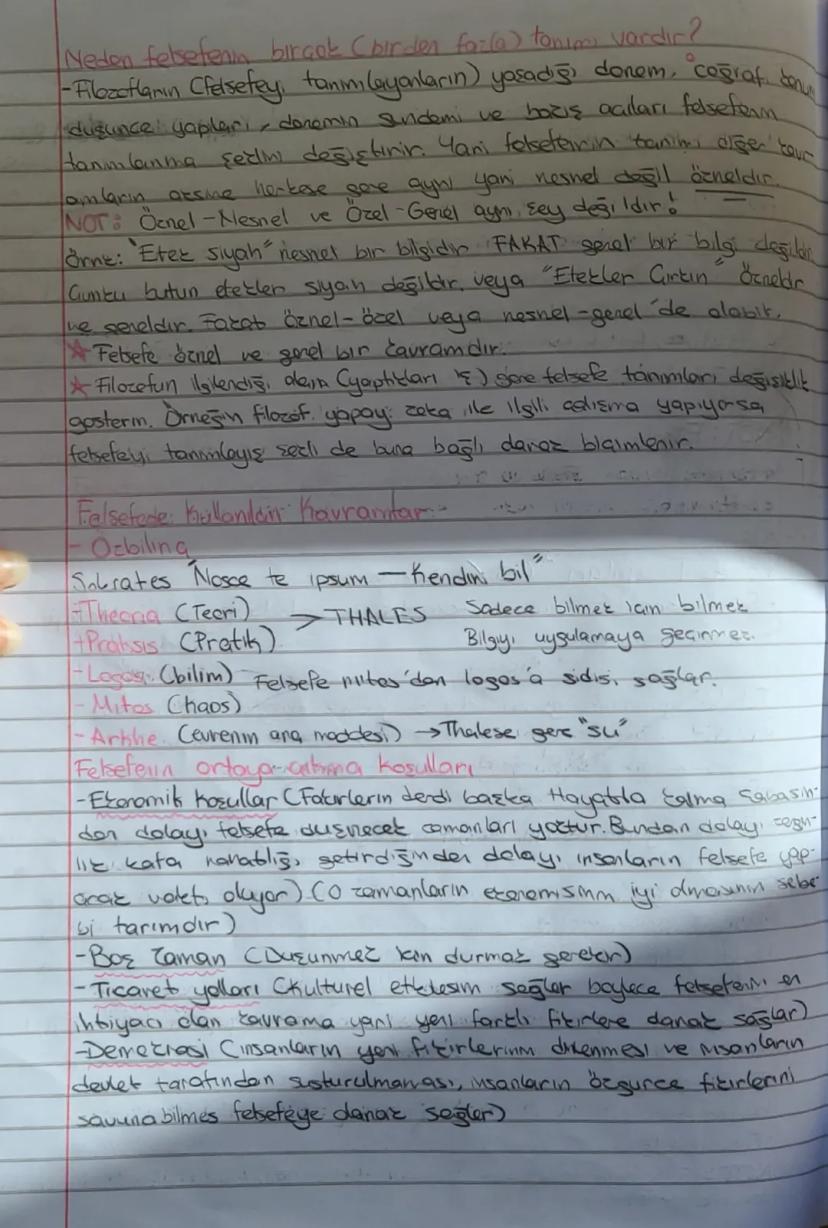 Neden felsefenin birçok (birden fazla) tanımı vardır?
-Filozofların (felsefeyi tanımlayanların) yaşadığı dönem, coğrafi konum
düşünce yapıları, dönemin gündemi ve bakış açıları felsefenin
tanımlanma şeklini değiştirir. Yani felsefenin tanımı diğer kavr-
amların aksine herkese göre aynı yani nesnel değil özneldir.
NOT: Öznel-Nesnel ve Özel-Genel aynı şey değildir!
Örnk: "Etek siyah" nesnel bir bilgidir FAKAT genel bir bilgi değildir
Çünkü bütün etekler siyah değildir. veya "Etekler Çirkin" özneldir
ve geneldir. Fakat öznel-özel veya nesnel-genel'de olabilir.
★ Felsefe öznel ve genel bir kavramdır.
★ Filozofun ilgilendiği alana (yaptıkları iş) göre felsefe tanımları değişiklik
gösterir. Örneğin filozof yapay zeka ile ilgili çalışma yapıyorsa
felsefeyi tanımlayış şekli de buna bağlı olarak biçimlenir.
Felsefede Kullanılan Kavramlar:
- Özbilinç
Sokrates "Nosce te ipsum — Kendini bil"
-Theoria (Teori) > THALES Sadece bilmek için bilmek
-Prahsis (Pratik) Bilgiyi uygulamaya geçirmez.
-Logos (bilim) Felsefe mitos'dan logos'a gidişi sağlar.
- Mitos (haos)
- Arkhe (evrenin ana maddesi) → Thalese göre "su"
Felsefenin ortaya çıkma koşulları
-Ekonomik koşullar (Fakirlerin derdi başka Hayatta kalma çabasın-
dan dolayı felsefe düşünecek zamanları yoktur. Bundan dolayı zengin-
lik kafa rahatlığı getirdiğinden dolayı insanların felsefe yap-
acak vakti oluyor) (O zamanların ekonomisinin iyi olmasının sebe-
bi tarımdır)
-Boş Zaman (Düşünmek için durmak gerekir)
-Ticaret yolları (Kültürel etkileşim sağlar böylece felsefenin en
ihtiyacı olan kavrama yani yeni farklı fikirlere olanak sağlar)
-Demokrasi (insanların yeni fikirlerinin dinlenmesi ve insanların
devlet tarafından susturulmaması, insanların özgürce fikirlerini
savunabilmesi felsefeye olanak sağlar)